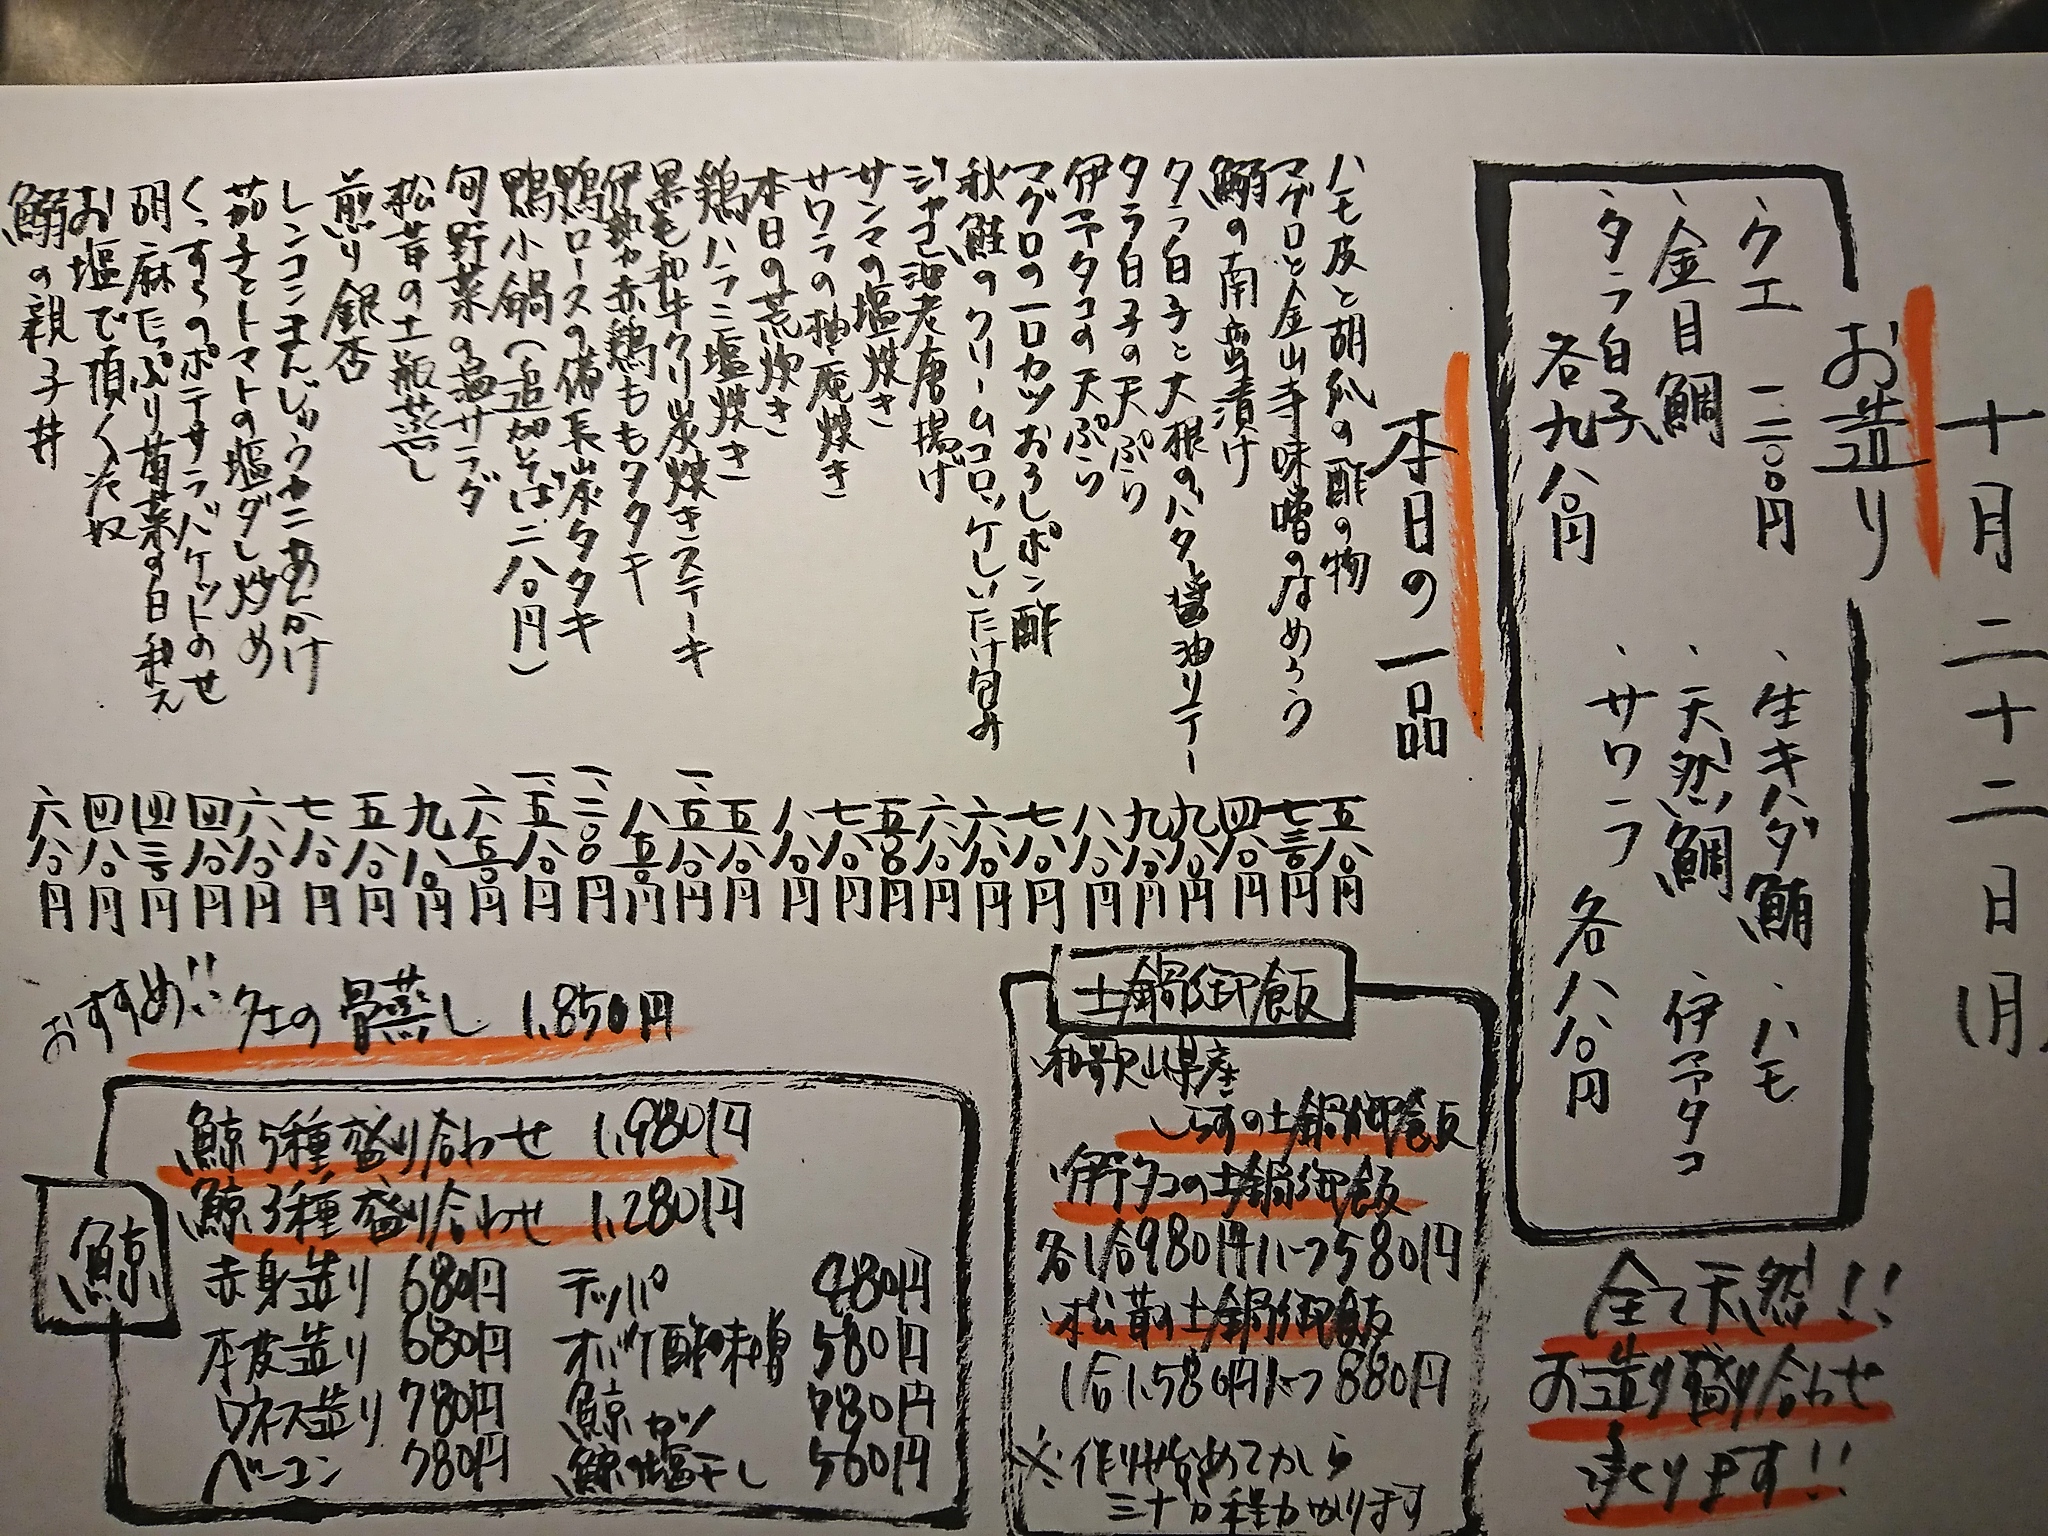 十月二十二日(月)
お造り
・クエ 一二〇〇円
・金目鯛
・タラ白子
各九八〇円
・生キハダ鮪
・ハモ
・天然鯛
・伊予タコ
・サワラ
各八八〇円
全て天然!!
お造り盛り合わせ
承ります!!
本日の一品
ハモ皮と胡瓜の酢の物 五八〇円
マグロと金山寺味噌のなめろう 七三〇円
鰯の南蛮漬け 四八〇円
タラ白子と大根のバター醤油ソテー 九八〇円
タラ白子の天ぷら 九八〇円
伊予タコの天ぷら 八八〇円
マグロの一口カツおろしポン酢 七八〇円
秋鮭のクリームコロッケしいたけ包み 六八〇円
ジャコ海老唐揚げ 六八〇円
サンマの塩焼き 五五〇円
サワラの柚庵焼き 七八〇円
本日の荒炊き 八八〇円
鶏ハラミ塩焼き 五八〇円
黒毛和牛クリ炭焼きステーキ 一、五八〇円
伊勢赤鶏ももタタキ 八五〇円
鴨ロースの備長炭タタキ 一、二〇〇円
鴨小鍋(追加そば二八〇円) 一、五八〇円
旬野菜の温サラダ 六五〇円
松茸の土瓶蒸し 九八〇円
煎り銀杏 五八〇円
レンコンまんじゅうカニあんかけ 七八〇円
茄子とトマトの塩ダレ炒め 六八〇円
くんすらのポテサラバケットのせ 四八〇円
胡麻たっぷり菊菜の白和え 四三〇円
お塩で頂く冷奴 四八〇円
鰯の親子丼 六八〇円
土鍋御飯
和歌山県産
しらすの土鍋御飯
伊予タコの土鍋御飯
各1合980円ハーフ580円
松茸の土鍋御飯
1合1,580円ハーフ880円
※作り始めてから
三十分程かかります
おすすめ!! クエの骨蒸し 1,850円
鯨
鯨5種盛り合わせ 1,980円
鯨3種盛り合わせ 1,280円
赤身造り 680円
本皮造り 680円
ウネス造り 780円
ベーコン 780円
テッパ 480円
オバケ酢味噌 580円
鯨カツ 980円
鯨の塩干し 560円